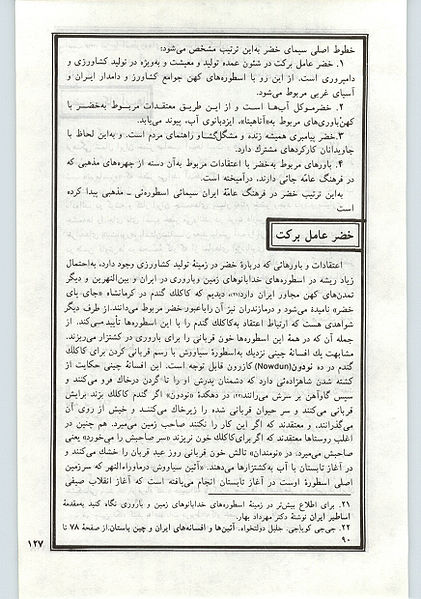 خطوط اصلی سیمای خضر به‌این ترتیب مشخص می‌شود:
۱. خضر عامل برکت در شئون عمده تولید و معیشت و به‌ویژه در تولید کشاورزی و
دامپروری است. از این رو با اسطوره‌های کهن جوامع کشاورز و دامدار ایران و
آسیای غربی مربوط می‌شود.
۲. خضر موکل آب‌ها است و از این طریق معتقدات مربوط به‌خضر با
کهن‌باوری‌های مربوط به‌«آناهیتا»، ایزدبانوی آب، پیوند می‌یابد.
۳. خضر پیامبری همیشه زنده و مشگل‌گشا و راهنمای مردم است. و به‌این لحاظ با
جاویدانان کارکردهای مشترك دارد.
۴. باورهای مربوط به‌خضر با اعتقادات مربوط به‌آن دسته از چهره‌های مذهبی که
در فرهنگ عامّه جائی دارند، درآمیخته است.
به‌این ترتیب خضر در فرهنگ عامّهٔ ایران سیمائی اسطوره‌ئی ــ مذهبی پیدا کرده
است
خضر عامل برکت
اعتقادات و باورهائی که دربارهٔ خضر در زمینهٔ تولید کشاورزی وجود دارد، به‌احتمال
زیاد ریشه در اسطوره‌های خدابانوهای زمین و باروری در ایران و بین‌النهرین و دیگر
تمدن‌های کهن مجاور ایران دارد(۲۱)، دیدیم که کاکلك گندم در کرمانشاه «جای پای
خضر» نامیده می‌شود و درمازندران نیز آن را باعبور خضر مربوط می‌دانند. از طرف دیگر
شواهدی هست که ارتباط اعتقاد به‌کاکلك گندم را با این اسطوره‌ها تأیید می‌کند. از
جمله آن که در همهٔ این اسطوره‌ها خون قربانی را برای باروری در کشتزار می‌ریزند.
مشابهت یك افسانهٔ چینی نزدیك به‌اسطورهٔ سیاوش با رسم قربانی کردن برای کاکلك
گندم در ده نودون (Nowdun) کازرون قابل توجه است. این افسانهٔ چینی حکایت از
کشته شدن شاهزاده‌ئی دارد که دشمنان پدرش او را تا گردن درخاك فرو می‌کنند و
سپس گاوآهن بر سرش می‌رانند(۲۲)، در دهکدهٔ «نودون» اگر گندم کاکلك بزند برایش
قربانی می‌کنند و سر حیوان قربانی شده را زیرخاك می‌کنند و خیش از روی آن
می‌گذرانند، و معتقدند که اگر این کار را نکنند صاحب زمین می‌میرد. هم چنین در
اغلب روستاها معتقدند که اگر برای‌کاکلك خون نریزند «سر صاحبش را می‌خورد» یعنی
صاحبش می‌میرد. در «نومندان» تالش خون قربانی روز عید قربان را خشك می‌کنند و
در آغاز تابستان با آب به‌کشتزارها می‌دهند. «آئین سیاوش درماوراءالنهر که سرزمین
اصلی اسطورهٔ اوست در آغاز تابستان انجام می‌یافته است که آغاز انقلاب صیفی
۲۱. برای اطلاع بیش‌تر در زمینهٔ اسطوره‌های خدابانوهای زمین و باروری نگاه کنید به‌مقدمهٔ
اساطیر ایران نوشتهٔ دکتر مهرداد بهار.
۲۲. جی‌جی کویاجی. جلیل دوستخواه. آئین‌ها و افسانه‌های ایران و چین باستان. از صفحهٔ ۷۸ تا
۹۰
۱۲۷